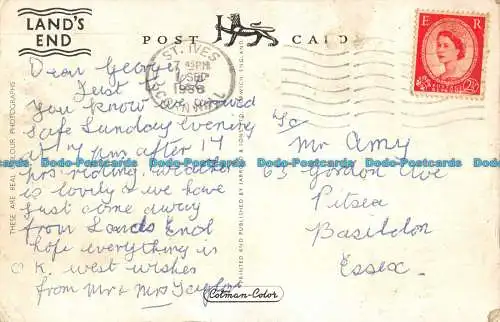 LAND'S
END
POST CARD
ST. IVES
7 45 PM
1 SEP
1958
CORNWALL
E R
2½D
Dear George
Just
you know we arrived
safe Sunday evening
at 7 pm after 14
hrs riding. weather
is lovely & we have
just come away
from Lands End
hope everything is
O K. west wishes
from Mr & Mrs Taylor
Mr Amy
63 Gordon Ave
Pitsea
Basildon
Essex.
THESE ARE REAL COLOUR PHOTOGRAPHS
PRINTED AND PUBLISHED BY JARROLD & SONS LTD. NORWICH, ENGLAND
Colman-Color
Todo-Postcards Todo-Postcards Todo-Postcards Todo-Postcards